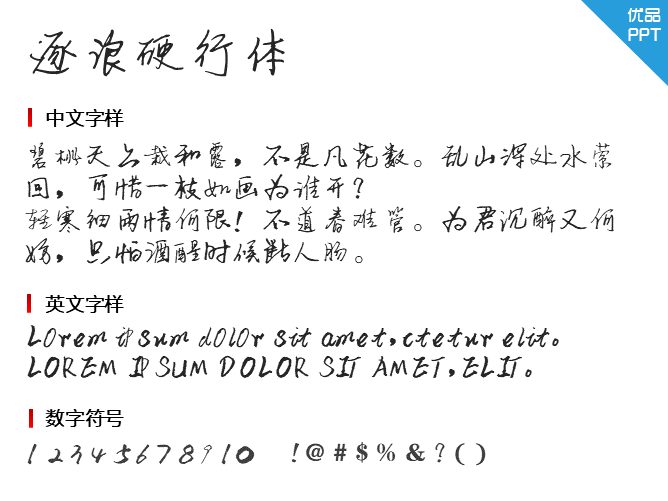 优品
PPT
逐浪硬行体
中文字样
碧桃天上栽和露，不是凡花数。乱山深处水萦
回，可惜一枝如画为谁开？
轻寒细雨情何限！不道春难管。为君沉醉又何
妨，只怕酒醒时候断人肠。
英文字样
Lorem ip sum dolor sit amet,ctetur elit。
LOREM IP SUM DOLOR SIT AMET,ELIT。
数字符号
12345678910 !@#$%&?()